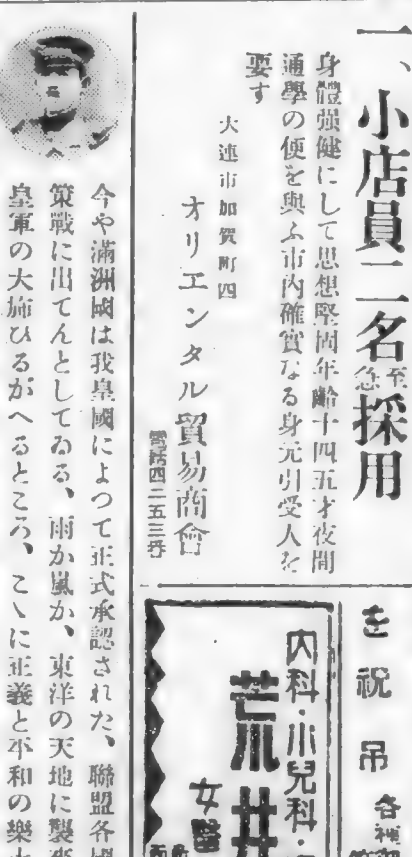 一、小店員二名至急採用
身體强健にして思想堅固年齡十四五才夜間
通學の便を與ふ市內確實なる身元引受人を
要す
大連市加賀町四
オリエンタル貿易商會
電話四二五三番
を祝
吊
各種
內科・小兒科・
荒井
女醫
今や滿洲國は我皇國によつて正式承認された、聯盟各國
策戰に出てんとしてゐる、雨か嵐か、東洋の天地に襲來
皇軍の大旆ひるがへるところ、こゝに正義と平和の樂土